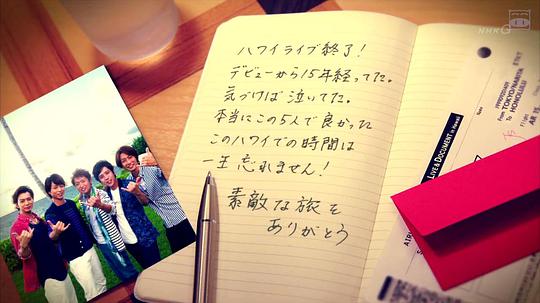 ハワイライブ終了!
デビューから15年経ってた。
気づけば泣いてた。
本当にこの5人で良かった
このハワイでの時間は
一生忘れません!
素敵な旅を
ありがとう
NHK G
LIVE & DOCUMENT in Hawaii
From TOKYO/NARITA
To HONOLULU